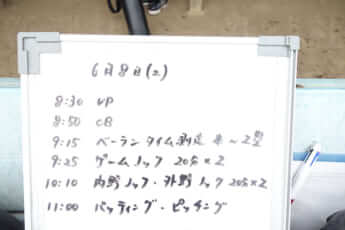 6月8日(土)
8:30 UP
8:50 CB
9:15 ベーランタイム測定 本〜2塁
9:25 ゲームノック 20分×2
10:10 内野ノック・外野ノック 20分×2
11:00 バッティング・ピッチング